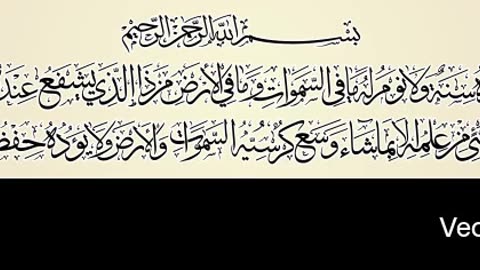 بسم الله الرحمن الرحيم
ه سنة ولا نوم له ما في السموات وما في الأرض من ذا الذي يشفع عند
ئ من علمه إلا بما شاء وسع كرسيه السموات والأرض ولا يؤده حفظ
Vec